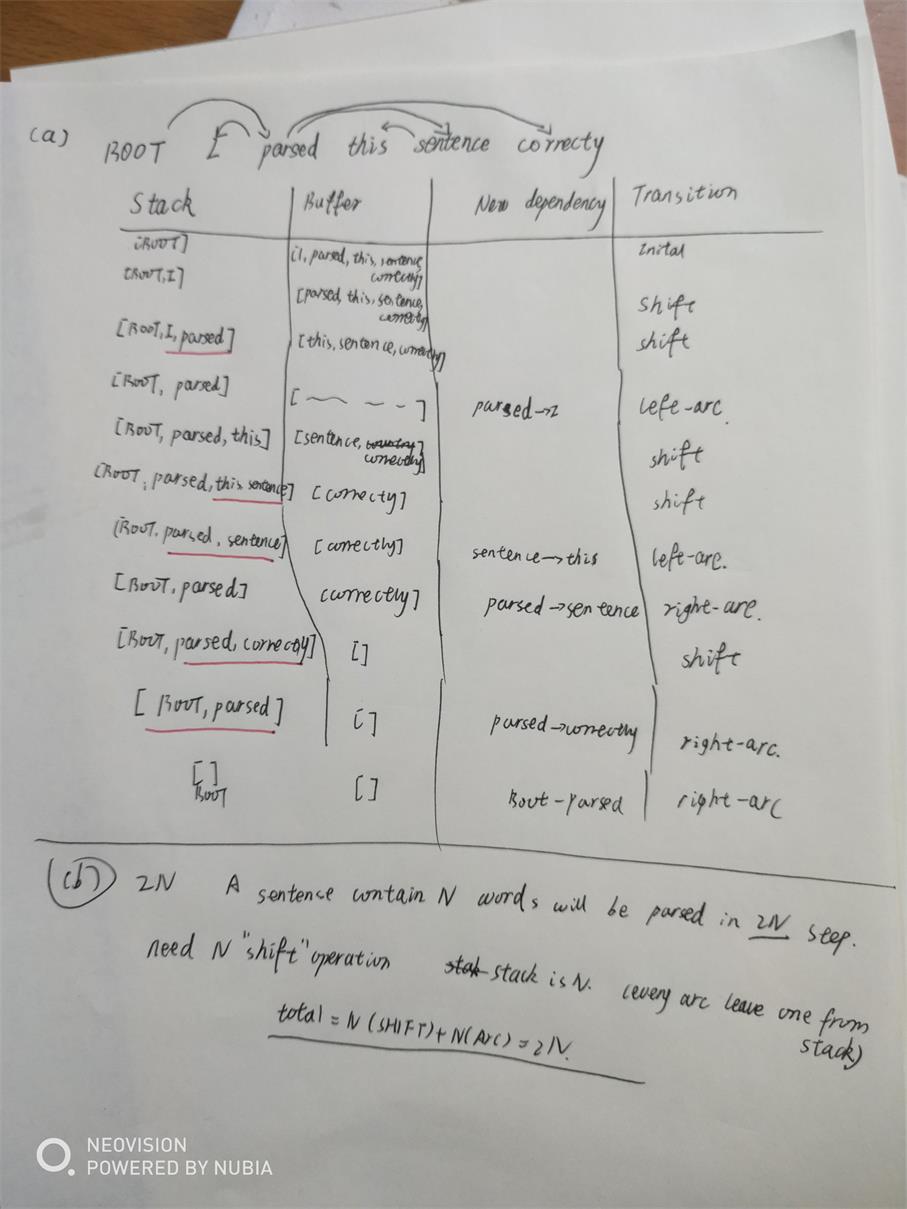 (a) ROOT I parsed this sentence correcty
Stack Buffer New dependency Transition
[ROOT] [I, parsed, this, sentence, correctly] Inital
[ROOT, I] [parsed, this, sentence, correctly] Shift
[ROOT, I, parsed] [this, sentence, correctly] shift
[ROOT, parsed] [ ~ - - ] parsed→I left-arc.
[ROOT, parsed, this] [sentence, correctly] shift
[ROOT, parsed, this sentence] [correcty] shift
(ROOT. parsed, sentence] [correctly] sentence→this left-arc.
[ROOT, parsed] [correctly] parsed→sentence right-arc.
[ROOT, parsed, correctly] [] shift
[ROOT, parsed] [] parsed→correctly right-arc.
[] [] Root-parsed right-arc
ROOT
(b) 2N A sentence contain N words will be parsed in 2N step.
need N "shift" operation stack is N. (every arc leave one from
stack)
total = N (SHIFT) + N(Arc) = 2N.
NEOVISION
POWERED BY NUBIA